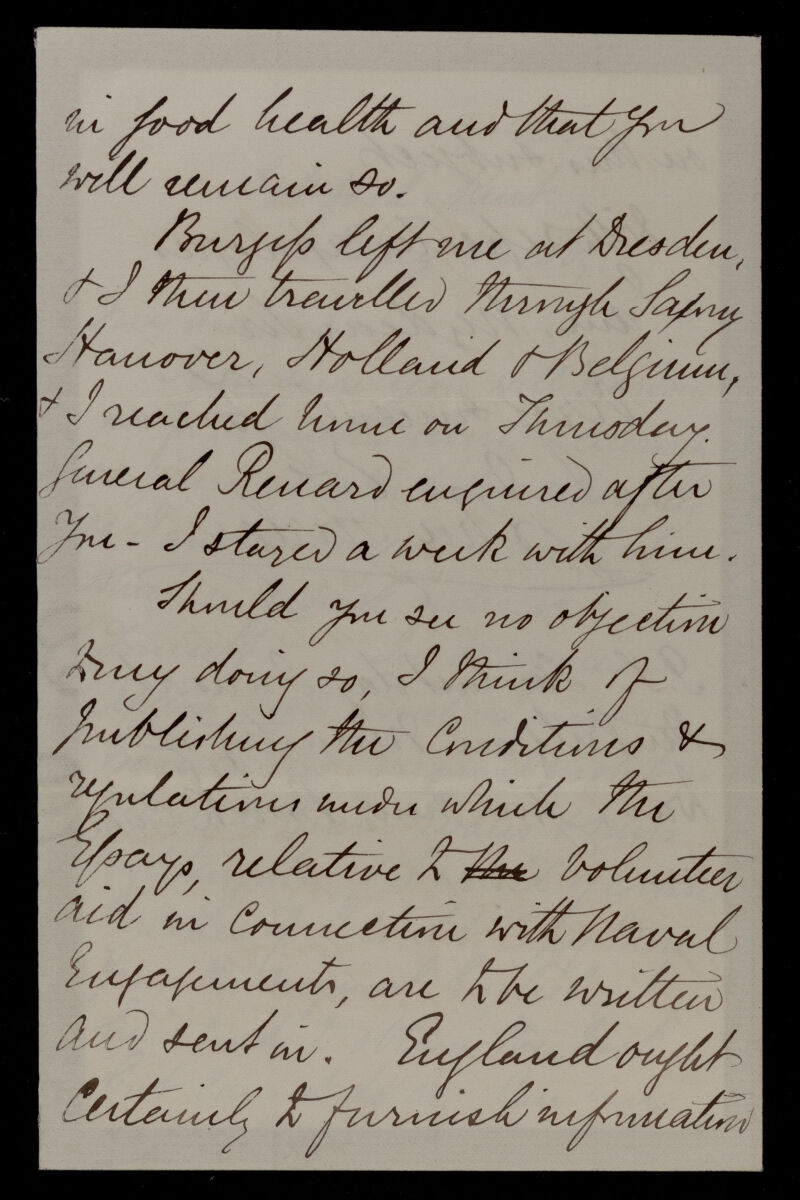 in good health and that you
will remain so.
Burgess left me at Dresden,
& I then travelled through Saxony
Hanover, Holland & Belgium,
& I reached home on Thursday.
General Renard enquired after
you - I stayed a week with him.
Should you see no objection
to my doing so, I think of
publishing the Conditions &
regulations under which the
Essays, relative to the Volunteer
aid in connection with Naval
Engagements, are to be written
and sent in. England ought
certainly to furnish information